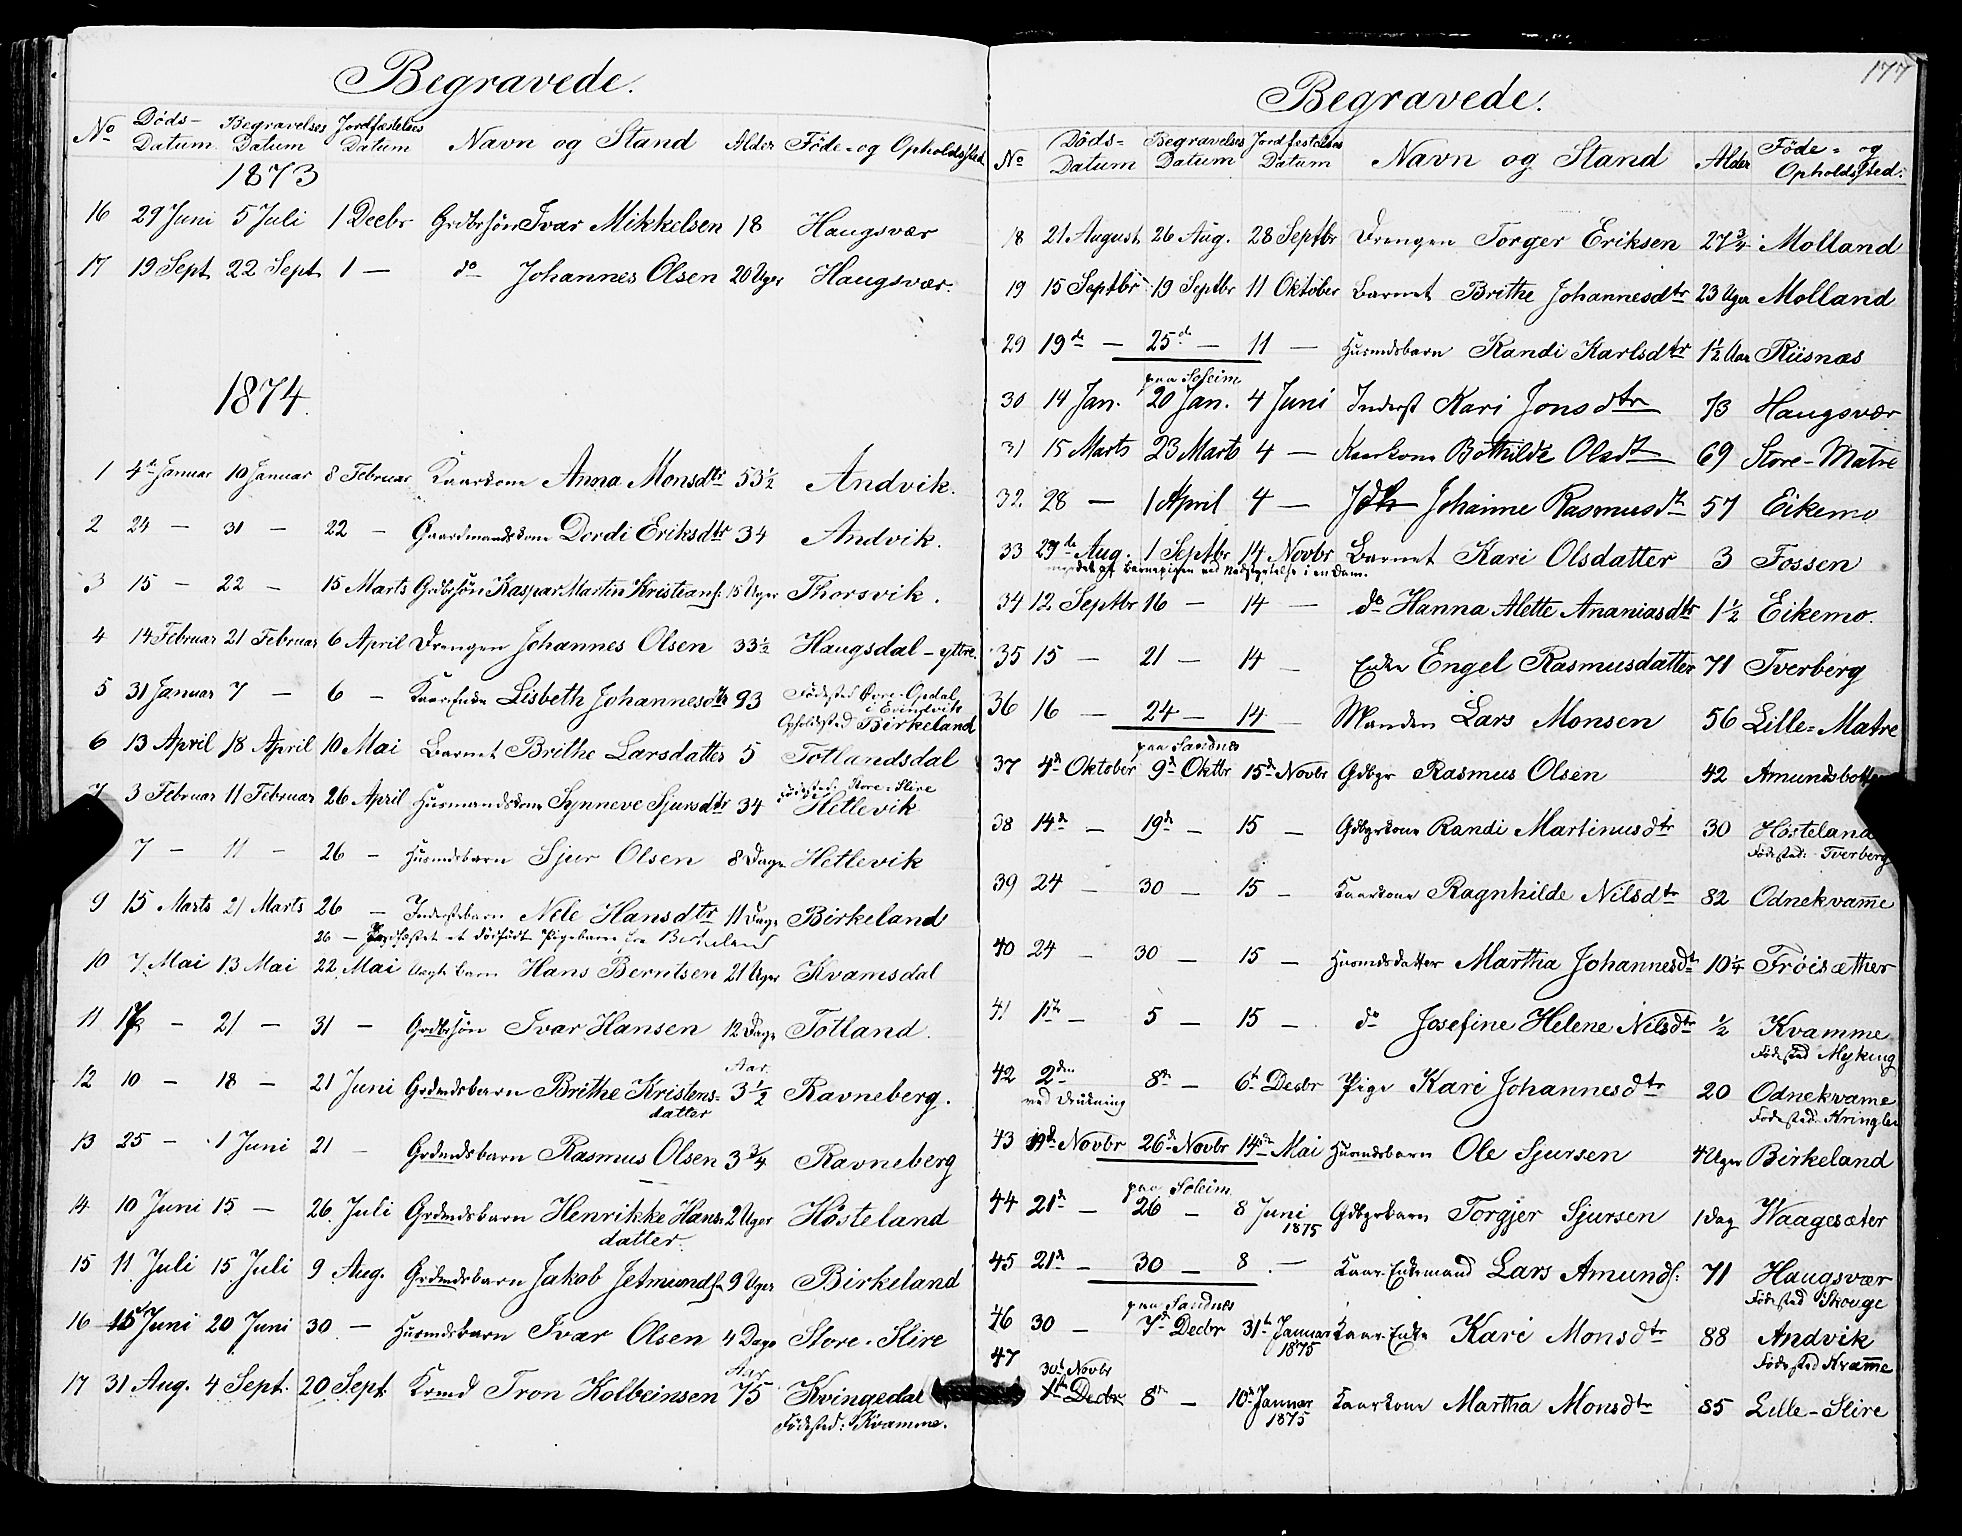 Begravede.
No Döds-Datum. Begravelses Datum Jordfæstelses Datum Navn og Stand Alder Föde- og Opholdssted
1873
16 29 Juni 5 Juli 1 Decbr Grdbrsön Ivar Mikkelsen 18 Haugsvær
17 19 Sept 22 Sept 1 — do Johannes Olsen 20 Uger Haugsvær.
1874.
1 4de Januar 10 Januar 8 Februar Kaarkone Anna Monsdtr 53½ Andvik.
2 24 — 31 — 22 — Gaardmandskone Dordi Eriksdtr 34 Andvik.
3 15 — 22 — 15 Marts Grdbrsön Kaspar Martin Kristians: 15 Uger Thorsvik.
4 14 Februar 21 Februar 6 April Drengen Johannes Olsen 33½ Haugsdal - yttre.
5 31 Januar 7 — 6 — Kaar-Enke Lisbeth Johannesdtr 93 Födested Övre-Opdal
i Evindvik
Opholdssted Birkeland
6 13 April 18 April 10 Mai Barnet Brithe Larsdatter 5 Totlandsdal
Födested: Store-Slire
7 3 Februar 11 Februar 26 April Husmandskone Synneve Sjursdtr 34 Hetlevik
7 — 11 — 26 — Husmdsbarn Sjur Olsen 8 Dage Hetlevik
9 15 Marts 21 Marts 26 — Inderstebarn Nele Hansdtr 11 Dage Birkeland
26 — Jordfæstet et dödfödt Pigebarn fra Birkeland
10 7. Mai 13 Mai 22 Mai Uægte barn Hans Berntsen 21 Uger Kvamsdal
11 17 — 21 — 31 — Grdbrsön Ivar Hansen 12 Dage Totland.
Aar.
12 10 — 18 — 21 Juni Grdmdsbarn Brithe Kristens= 3½ Ravneberg.
datter
13 25 — 1 Juni 21 — Grdmdsbarn Rasmus Olsen 3¾ Ravneberg
14. 10 Juni 15 — 26. Juli Grdmdsbarn Henrikke Hans= 2 Uger Hösteland
datter.
15 11 Juli 15 Juli 9 Aug. Grdmdsbarn Jakob Jetmunds: 9 Uger Birkeland
16 15 Juni 20 Juni 30 — Husmdsbarn Ivar Olsen 4 Dage Store-Slire
Aar
17 31 Aug. 4 Sept. 20 Sept. Krmd Tron Kolbeinsen 75 Kvingedal
Födested: Kvamme.
177
Begravede.
No Döds-Datum Begravelses Datum Jordfæstelses Datum Navn og Stand Alder Föde- og Opholdssted:
18 21 August 26 Aug. 28 Septbr Drengen Torger Eriksen 27¾ Molland
19 15 Septbr 19 Septbr 11 Oktober Barnet Brithe Johannesdtr 23 Uger Molland
29 19de — 25de — 11 — Husmdsbarn Randi Karlsdtr 1½ Aar Riisnæs
paa Soleim
30 14 Jan. 20 Jan. 4 Juni Inderst Kari Jonsdtr 73 Haugsvær
31 15 Marts 23 Marts 4 — Kaarkone Bothilde Olsdt 69 Store-Matre
32. 28 — 1 April 4 — Johanne Rasmusdt 57 Eikemo
33 29de Aug. 1 Septbr 14 Novbr Barnet Kari Olsdatter 3 Fossen
myrdet af Barnepigen ved Nedstyrtelse i en Dam.
34 12 Septbr 16 — 14 — do Hanna Alette Ananiasdtr 1½ Eikemo.
35 15 — 21 — 14 — Enke Engel Rasmusdatter 71 Tverberg
36 16 — 24 — 14 — Manden Lars Monsen 56 Lille-Matre
paa Sandnes
37 4de Oktober 9de Oktbr 15de Novbr Gdbgr Rasmus Olsen 42 Amundsbotten
38 14de — 19de — 15 — Gdbgrkone Randi Martinusdtr 30 Hösteland
Födested: Tverberg
39 24 — 30 — 15 — Kaarkone Ragnhilde Nilsdtr 82 Odnekvamme
40 24 — 30 — 15 — Husmdsdatter Martha Johannesdtr 10¼ Fröisæther
41 1ste — 5 — 15 — do Josefine Helene Nilsdtr ½ Kvamme
Födested Myking
42 2den — 8de — 6te Decbr Pige Kari Johannesdtr 20 Odnekvame
ved Drukning Födested: Kringlei
43 19de Novbr 26de Novbr 14de Mai Husmdsbarn Ole Sjursen 4 Uger Birkeland
paa Soleim
44 21de — 26 — 8 Juni Gdbgrbarn Torgjer Sjursen 1 Dag Waagesæter
1875
45 21de — 30 — 8 — Kaar-Enkemand Lars Amunds: 71 Haugsvær
Födested Skouge
paa Sandnes
46 30 — 7de Decbr 31te Januar Kaar-Enke Kari Monsdtr 88 Andvik
1875 Födested Kvamme
47 30te Novbr
1ste Decbr 8de — 10de Januar Kaarkone Martha Monsdtr 85 Lille-Slire
1875